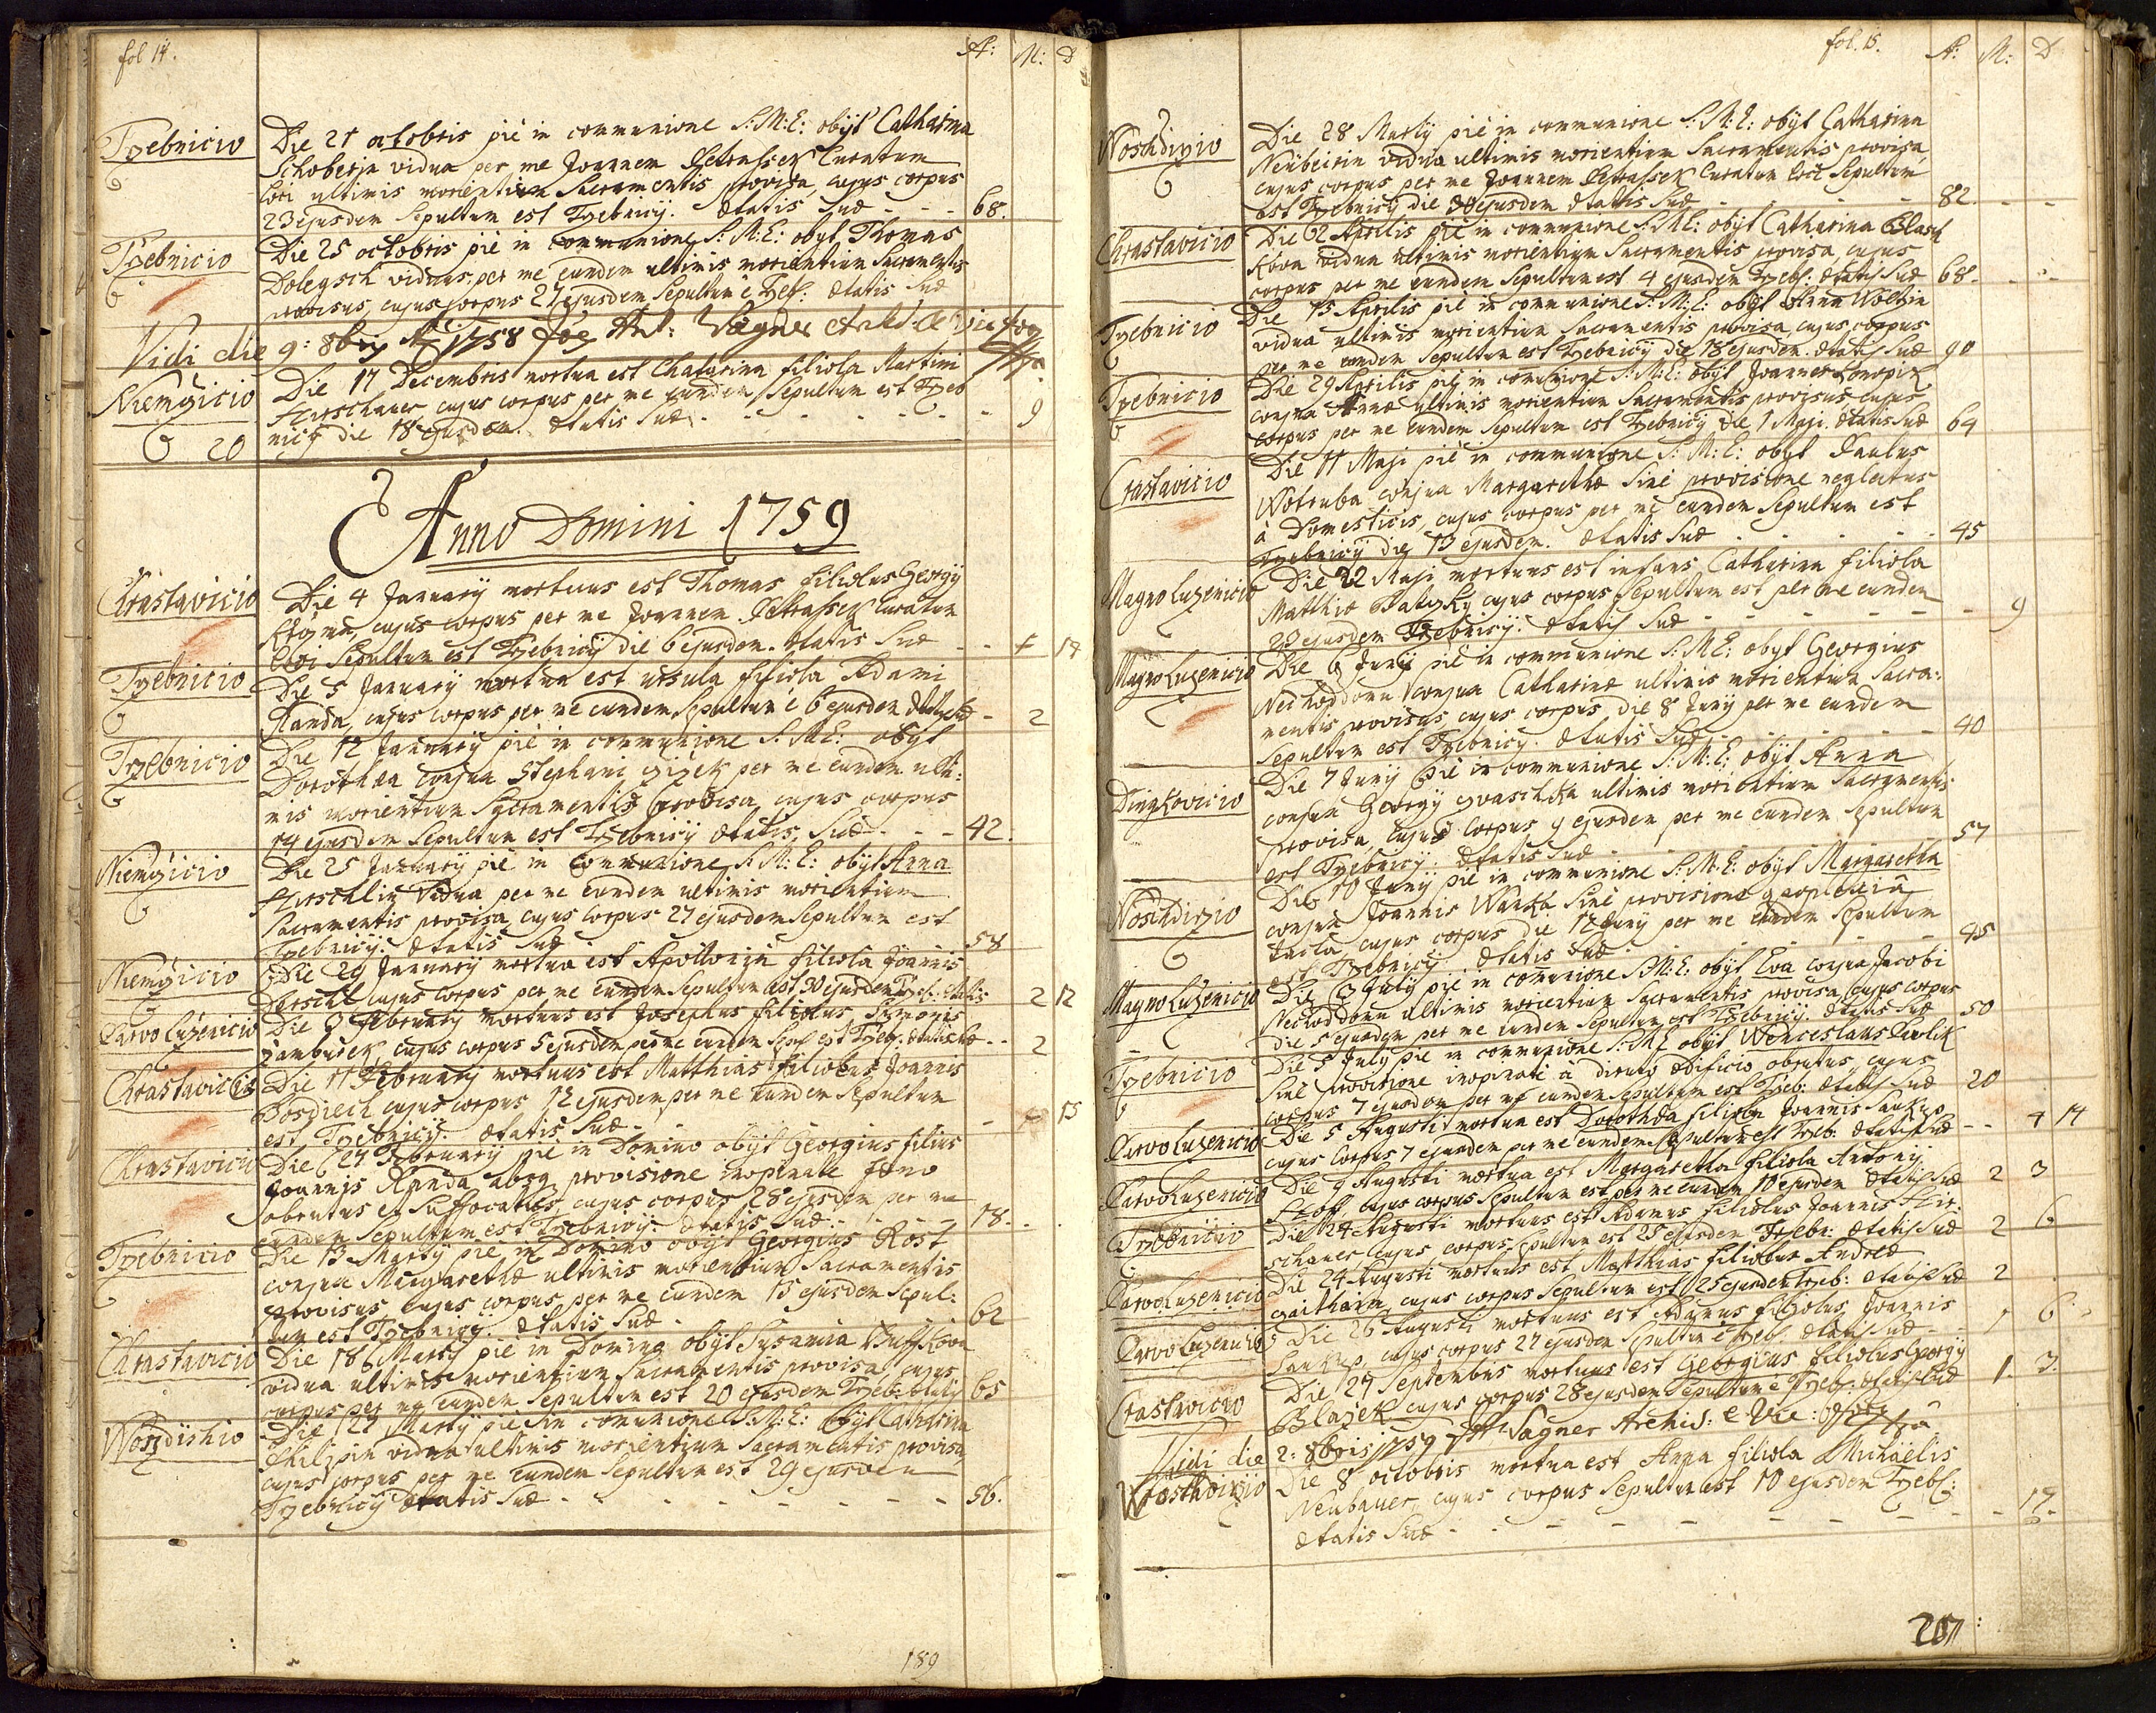 fol 14.
A: M: D
Tržebnicio
Die 21 octobris piè in communione S: M: E: obijt Catharina
Schoberjn vidua per me Joannem Petrassek Curatum
loci ultimis morientium Sacramentis provisa, cujus corpus
23 ejusdem Sepultum est Tržebnicij. Ætatis Suæ - - - 68.
Tržebnicio
Die 25 octobris piè in communione S: M: E: obyt Thomas
viduus per me eundem ultimis morientium Sacramentis
provisus, cujus corpus 27 ejusdem Sepultum è Tržeb: Ætatis Suæ
Vidi die 9: 8bris 1758
Niemžicio
Die 17 Decembris mortua est Chatarina filiola Martini
Hirschauer, cujus corpus per me eundem Sepultum est Tržeb
nicij die 18 ejusdem. Ætatis Suæ - - - 9
20
Anno Domini 1759
Chrastavicio
Die 4 January mortuus est Thomas filiolus Georgij
cujus corpus per me Joannem Petrassek Curatum
loci Sepultum est Tržebnicij die 6 ejusdem. Ætatis Suæ - -
Tržebnicio
Die 5 January mortua est Ursula filiola Adami
Randa, cujus corpus per me eundem Sepultum è 6 ejusdem Ætatis Suæ - 2
Tržebnicio
Die 12 January piè in communione S: M: E: obijt
Dorothea conjux Stephani per me eundem ulti:
mis morientium Sacramentis provisa, cujus corpus
14 ejusdem Sepultum est Tržebnicij Ætatis Suæ - - - 42.
Niemžicio
Die 25 January piè in Communione S: M: E: obijt Anna
Hirschlin Vidua per me eundem ultimis morientium
Sacramentis provisa, cujus corpus 27 ejusdem Sepultum est
Tržebnicij. Ætatis Suæ 58
Niemžicio
Die 29 January mortua est Apollonija filiola Joannis
cujus corpus per me eundem Sepultum est 30 ejusdem Tržeb: Ætatis 2 12
Parvo Luženicio
Die 3 February mortuus est Josephus filiolus Simonis
cujus corpus 5 ejusdem per me eundem Sepul est Tržeb: Ætatis Suæ - - 2
Chrastavicio
Die 11 February mortuus est Matthias filiolus Joannis
cujus corpus 12 ejusdem per me eundem Sepultum
est Tržebnicij. Ætatis Suæ - - - 15
Chrastavicio
Die 27 February piè in Domino obijt Georgius filius
Joannis Randa absq provisione inopinatè
obrutus et Suffocatus, cujus corpus 28 ejusdem per me
eundem Sepultum est Tržebnicij. Ætatis Suæ - - - 18.
Tržebnicio
Die 13 Martij piè in Domino obijt Georgius Rost
conjux Margarethæ ultimis morientium Sacramentis
provisus, cujus corpus per me eundem 15 ejusdem Sepul:
tum est Tržebnicij. Ætatis Suæ - 62
Chrastavicio
Die 18 Martij piè in Domino obijt Susanna
vidua ultimis morientium Sacramentis provisa, cujus
corpus per me eundem Sepultum est 20 ejusdem Tržeb: Ætatis 65
Die 27 Martij piè in comunione S: M: E: obijt Catharina
Philipin vidua ultimis morientium Sacramentis provisa,
cujus corpus per me eundem Sepultum est 29 ejusdem
Tržebnicij Ætatis Suæ - - - 56.
189
fol. 15.
A: M: D
Woshdirzio
Die 28 Martij piè in communione S: M: E: obijt Catharina
vidua ultimis morientium Sacramentis provisa,
cujus corpus per me Joannem Petrassek Curatum loci Sepultum
est Tržebnicij die 30 ejusdem Ætatis Suæ - - - 82.
Chrastavicio
Die 2 Aprilis piè in communione S: M: E: obijt Catharina
vidua ultimis morientium Sacramentis provisa, cujus
corpus per me eundem Sepultum est 4 ejusdem Tržeb: Ætatis Suæ 68
Tržebnicio
Die 15 Aprilis piè in communione S: M: E: obijt Anna
vidua ultimis morientium Sacramentis provisa, cujus corpus
per me eundem Sepultum est Tržebnicij die 18 ejusdem. Ætatis Suæ 90
Tržebnicio
Die 29 Aprilis piè in comunione S: M: E: obijt Joannes
conjux Annæ ultimis morientium Sacramentis provisus, cujus
corpus per me eundem Sepultum est Tržebnicij die 1 Maji. Ætatis Suæ 64
Crastavicio
Die 11 Maji piè in communione S: M: E: obijt Paulus
Wotruba conjux Margarethæ Sine provisione neglectus
à Domesticis, cujus corpus per me eundem Sepultum est
Tržebnicij die 13 ejusdem. Ætatis Suæ - - - 45
Magno Luženicio
Die 22 Maji mortuus est infans Catharina filiola
Matthiæ cujus corpus Sepultum est per me eundem
23 ejusdem Tržebnicij. Ætatis Suæ - - - 9
Magno Luženicio
Die 6 Junij piè in communione S: M: E: obyt Georgius
conjux Catharinæ ultimis morientium Sacra:
mentis provisus, cujus corpus die 8 Junij per me eundem
Sepultum est Tržebnicij. Ætatis Suæ - - - 40
Die 7 Junij piè in communione S: M: E: obijt Anna
conjux Georgij ultimis morientium Sacramentis
provisa, cujus Corpus 9 ejusdem per me eundem Sepultum
est Tržebnicij. Ætatis Suæ - - - 57
Woshdirzio
Die 10 Junij piè in communione S: M: E: obijt Margaretha
conjux Joannis Sine provisione apoplexia
tacta, cujus corpus die 12 Junij per me eundem Sepultum
est Tržebnicij Ætatis Suæ - - - 45
Magno Luženicio
Die 3 July piè in comunione S: M: E: obijt Eva conjux Jacobi
ultimis morientium Sacramentis provisa, cujus corpus
die 5 ejusdem per me eundem Sepultum est Tržebnicij. Ætatis Suæ 50
Tržebnicio
Die 5 July piè in communione S: M: E obijt Wenceslaus Pavlik
Sine provisione inopinatè à diruto ædificio obrutus, cujus
corpus 7 ejusdem per me eundem Sepultum est Tržeb: Ætatis Suæ 20
Parvo Luženicio
Die 5 Augusti mortua est Dorothea filiola Joannis Saukup
cujus Corpus 7 ejusdem per me eundem Sepultum est Tržeb: Ætatis Suæ - - 4 14
Parvo Luženicio
Die 9 Augusti mortua est Margaretha filiola Antonij
cujus corpus Sepultum est per me eundem 10 ejusdem Ætatis Suæ 2 3
Tržebnicio
Die 24 Augusti mortuus est Adamus filiolus Joannis Hir:
schauer cujus corpus Sepultum est 25 ejusdem Tržebn: Ætatis Suæ 2 6
Parvo Luženicio
Die 24 Augusti mortuus est Matthias filiolus Andreæ
cujus corpus Sepultum est 25 ejusdem Tržeb: Ætatis Suæ 2
Parvo Luženicio
Die 26 Augusti mortuus est Adamus filiolus Joannis
Saukup, cujus corpus 27 ejusdem Sepultum è Tržeb. Ætatis Suæ - - 1 6
Crastavicio
Die 27 Septembris mortuus est Georgius filiolus Georgij
Blažek cujus corpus 28 ejusdem Sepultum è Tržeb: Ætatis Suæ 1. 3.
Vidi die 2: 8bris 1759 Sagner Archid:
Die 8 octobris mortua est Anna filiola Michaelis
Neubauer, cujus corpus Sepultum est 10 ejusdem Tržeb:
Ætatis Suæ - - - 17
207